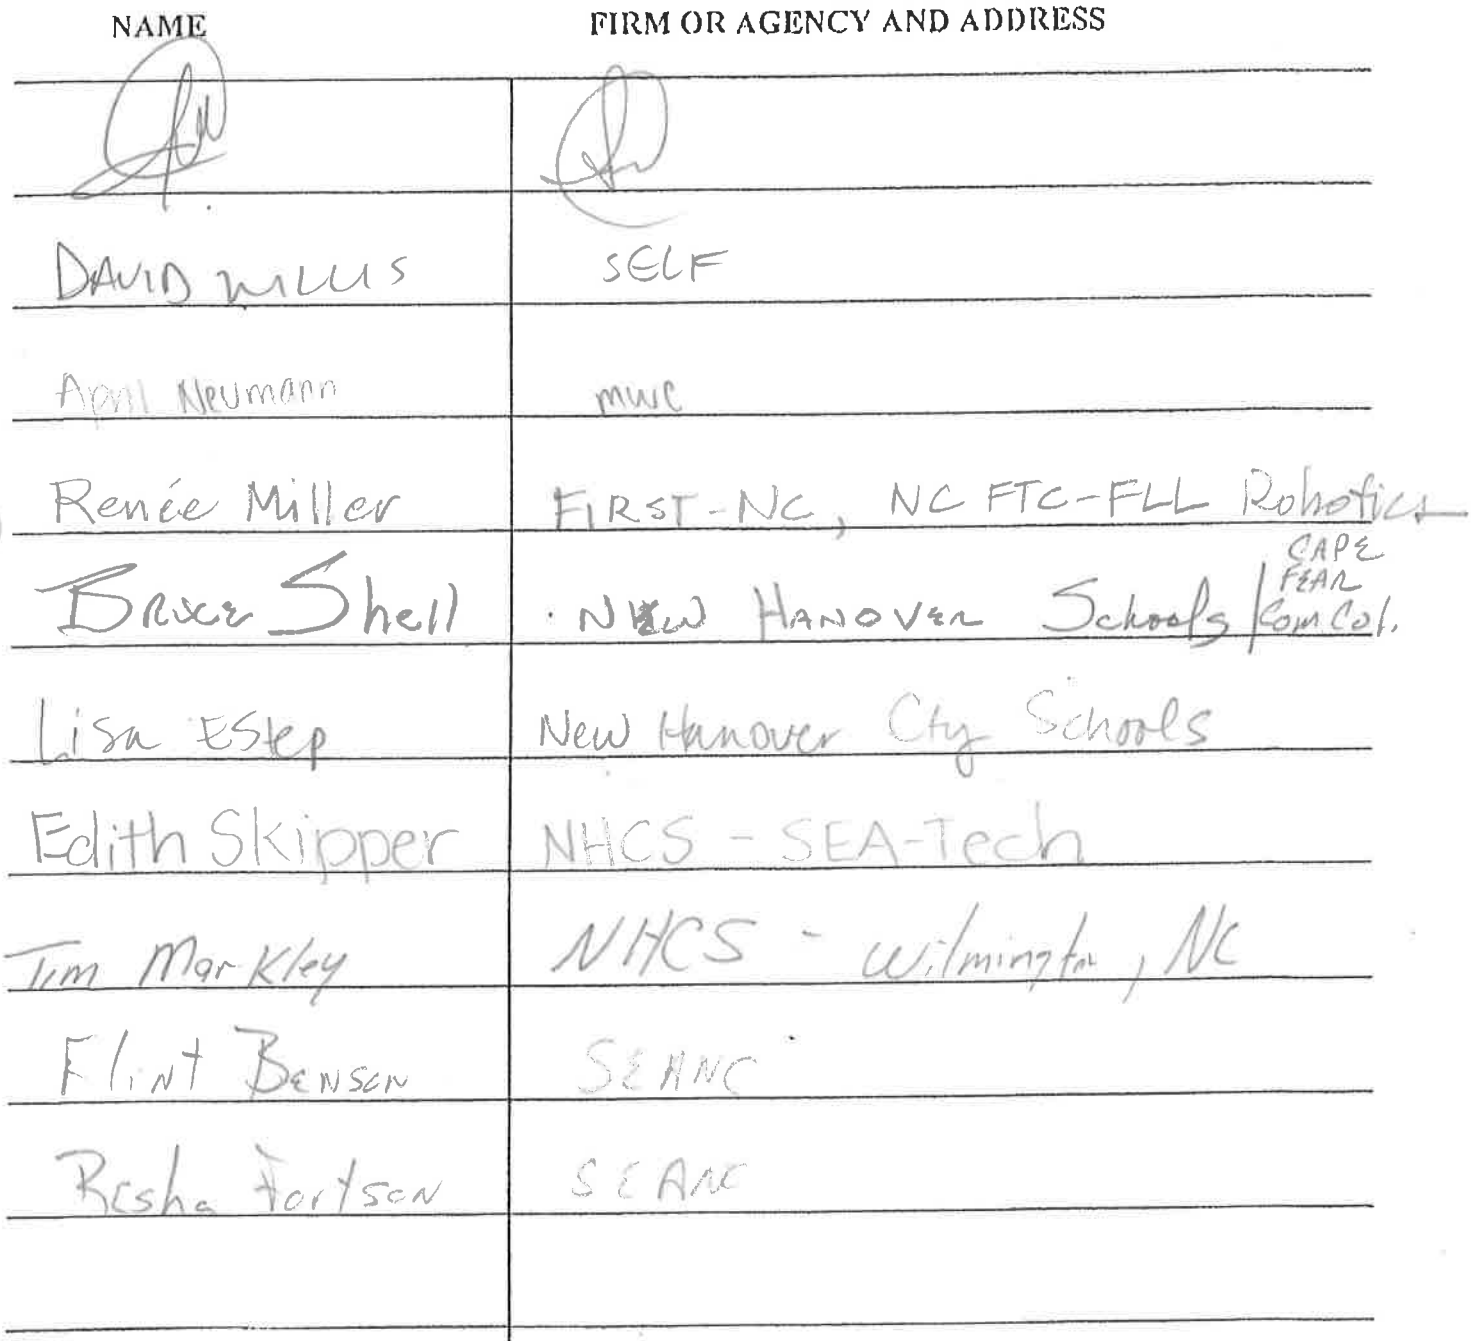 NAME FIRM OR AGENCY AND ADDRESS
DAVID WILLIS SELF
April Neumann MWC
Renée Miller FIRST-NC, NC FTC-FLL Robotics
Bruce Shell NEW HANOVER Schools/CAPE FEAR Com Col.
Lisa Estep New Hanover Cty Schools
Edith Skipper NHCS - SEA-Tech
Tim Markley NHCS - Wilmington, NC
Flint Benson SEANC
Fortson SEANC